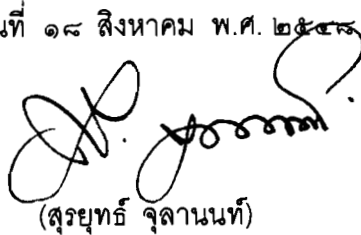 นที่ ๑๘ สิงหาคม พ.ศ. ๒๕๔๘
(สุรยุทธ์ จุลานนท์)